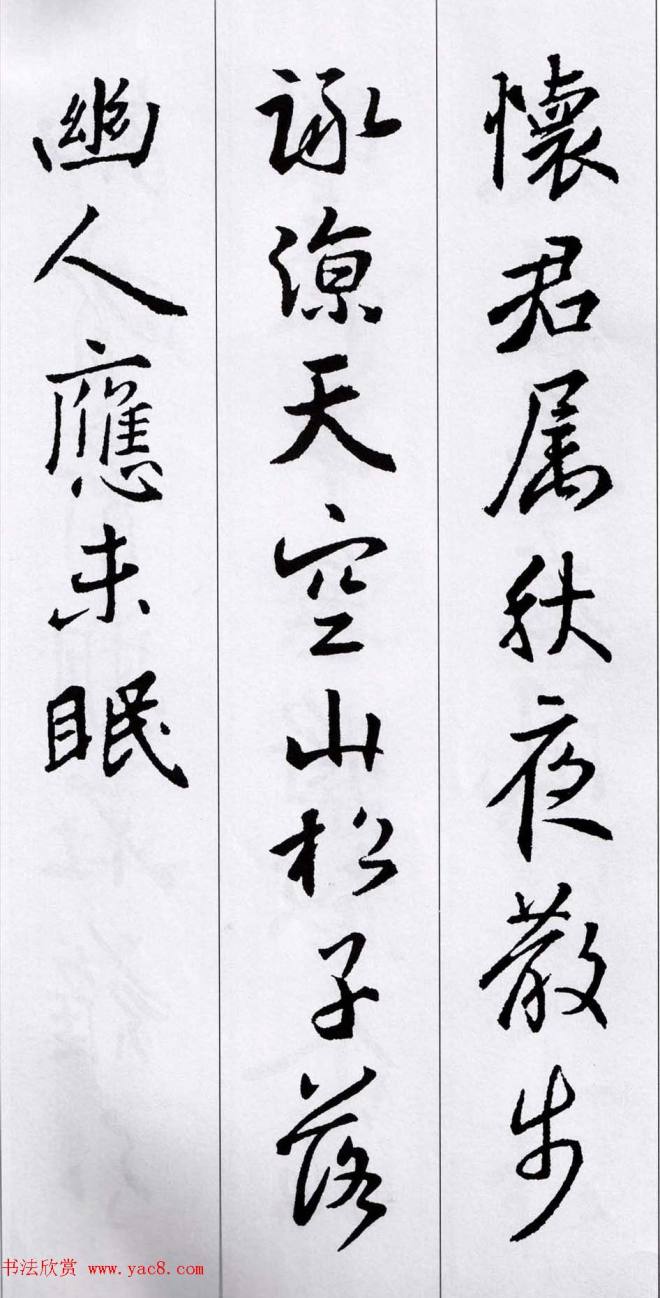 懷君属秋夜散步
詠涼天空山松子落
幽人應未眠
书法欣赏 www.yac8.com